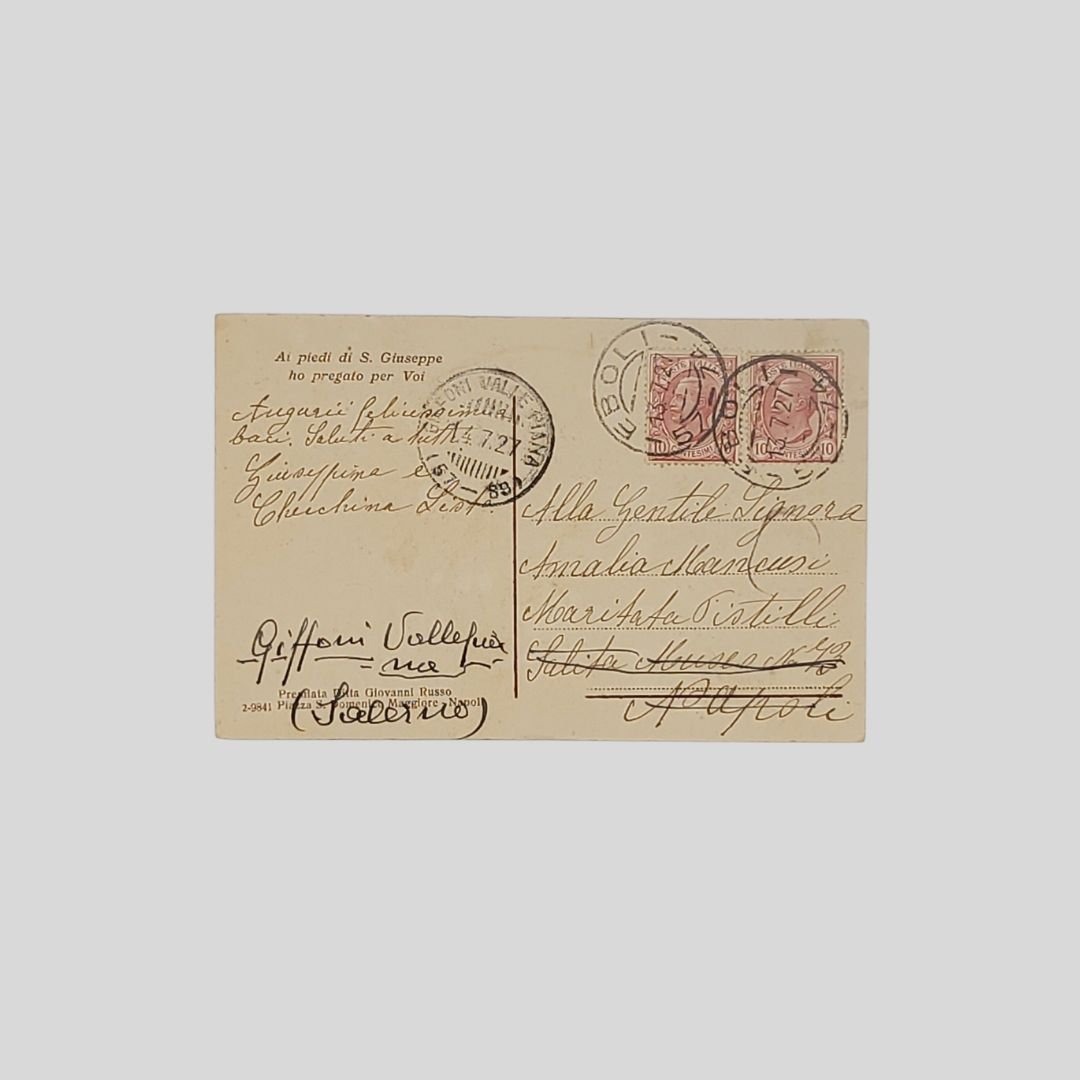 Ai piedi di S. Giuseppe
ho pregato per Voi
Augurii felicissimi
baci. Saluti a tutti
Giuseppina e
Checchina
Giffoni Vallepia
na
(Salerno)
Premiata Ditta Giovanni Russo
2-9841 Piazza S. Domenico Maggiore - Napoli
GIFFONI VALLE PIANA
14.7.27
(57 - 89)
EBOLI
POSTE ITALIANE
10 CENTESIMI 10
EBOLI
13.7.27
POSTE ITALIANE
10 CENTESIMI 10
Alla Gentile Signora
Amalia Mancusi
Maritata Pistilli
Salita Museo N. 73
Napoli